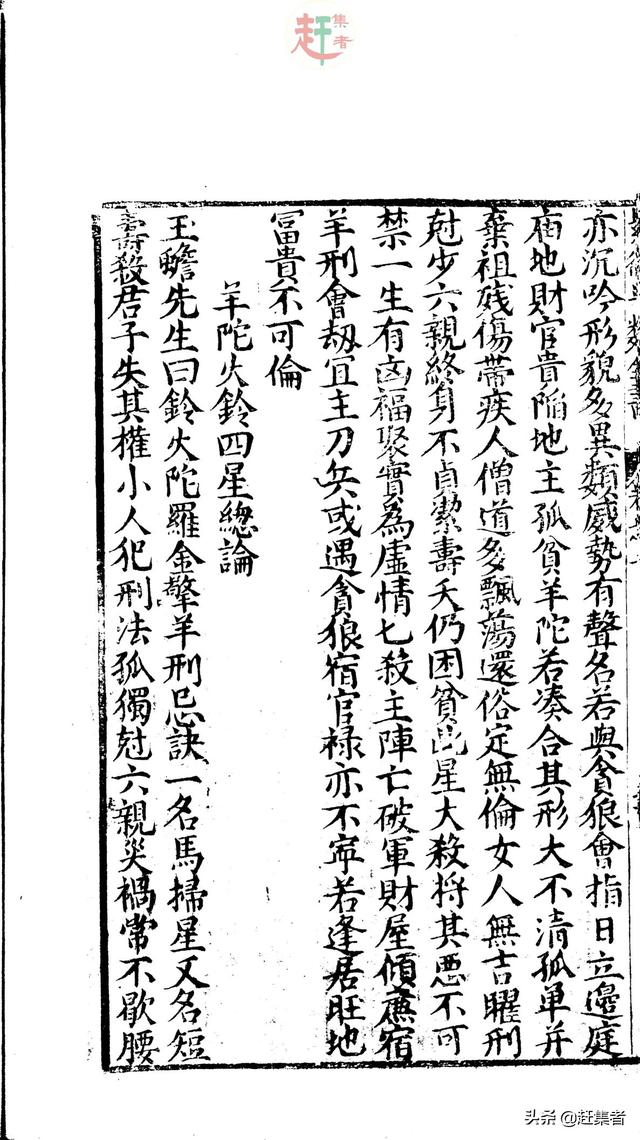 赶集者
亦沉吟形貌多異類威勢有聲名若與貪狼會指日立邉庭
庙地財官貴陥地主孤貧羊陀若凑合其形大不清孤单并
棄祖残傷帶疾人僧道多飄荡還俗定無倫女人無吉曜刑
尅少六親終身不貞潔壽夭仍困貧此星大殺将其惡不可
禁一生有凶福聚實為虚情七殺主陣亡破軍財屋傾亷宿
羊刑會劫宜主刀兵或遇貪狼宿官禄亦不寜若逢居旺地
冨貴不可倫
羊陀火鈴四星緫論
玉蟾先生曰鈴火陀羅金擎羊刑忌訣一名馬掃星又名短
壽殺君子失其權小人犯刑法孤獨尅六親災禍常不歇腰
头条 @赶集者